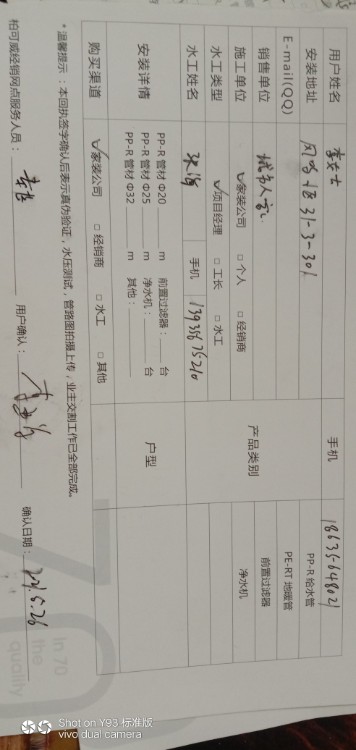 用户姓名 李女士 手机
安装地址 31-3-301 PP-R 给水管
E-mail(QQ) PE-RT 地暖管
销售单位 产品类别 前置过滤器
施工单位 ✓家装公司 □ 个人 □ 经销商 净水机
水工类型 ✓项目经理 □ 工长 □ 水工
水工姓名 手机 13935675210
安装详情 PP-R 管材 Φ20 m 前置过滤器： 台 户型
PP-R 管材 Φ25 m 净水机： 台
PP-R 管材 Φ32 m 其他：
购买渠道 ✓家装公司 □ 经销商 □ 水工 □ 其他
*温馨提示：本回执签字确认后表示真伪验证，水压测试，管路图拍摄上传，业主交割工作已全部完成。
柏可威经销网点服务人员： 用户确认： 确认日期：
In 70
the
quality
Shot on Y93 标准版
vivo dual camera